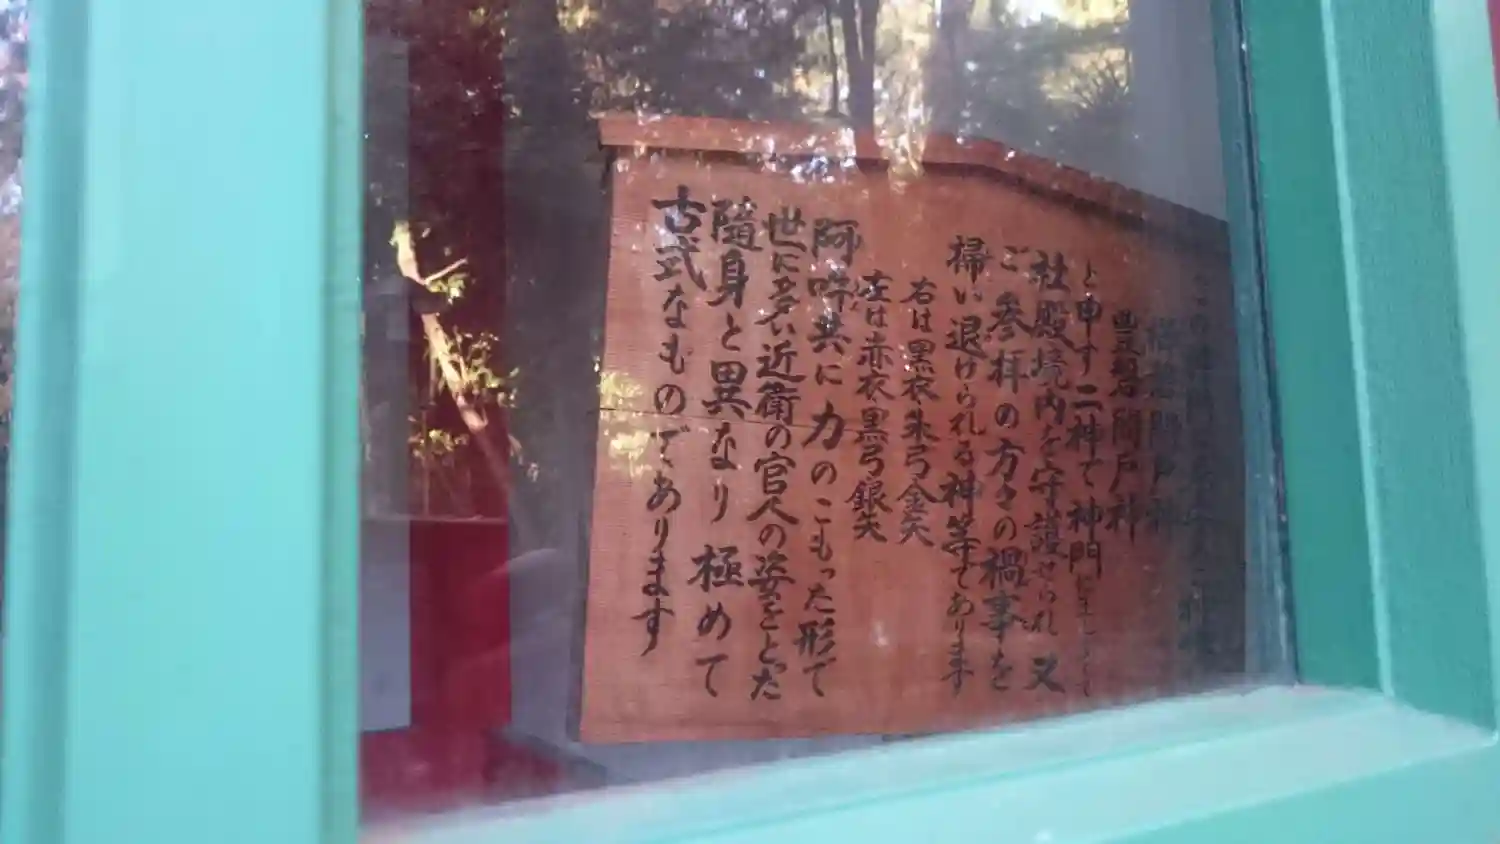 豊磐間戸神
と申す二神で神門に
社殿境内を守護せられ 又
ご参拝の方々の禍事を
掃い退けられる神等であります
右は黒衣朱弓金矢
左は赤衣黒弓銀矢
阿吽共に力のこもった形で
世に多い近衛の官人の姿をとった
隨身と異なり 極めて
古式なものであります